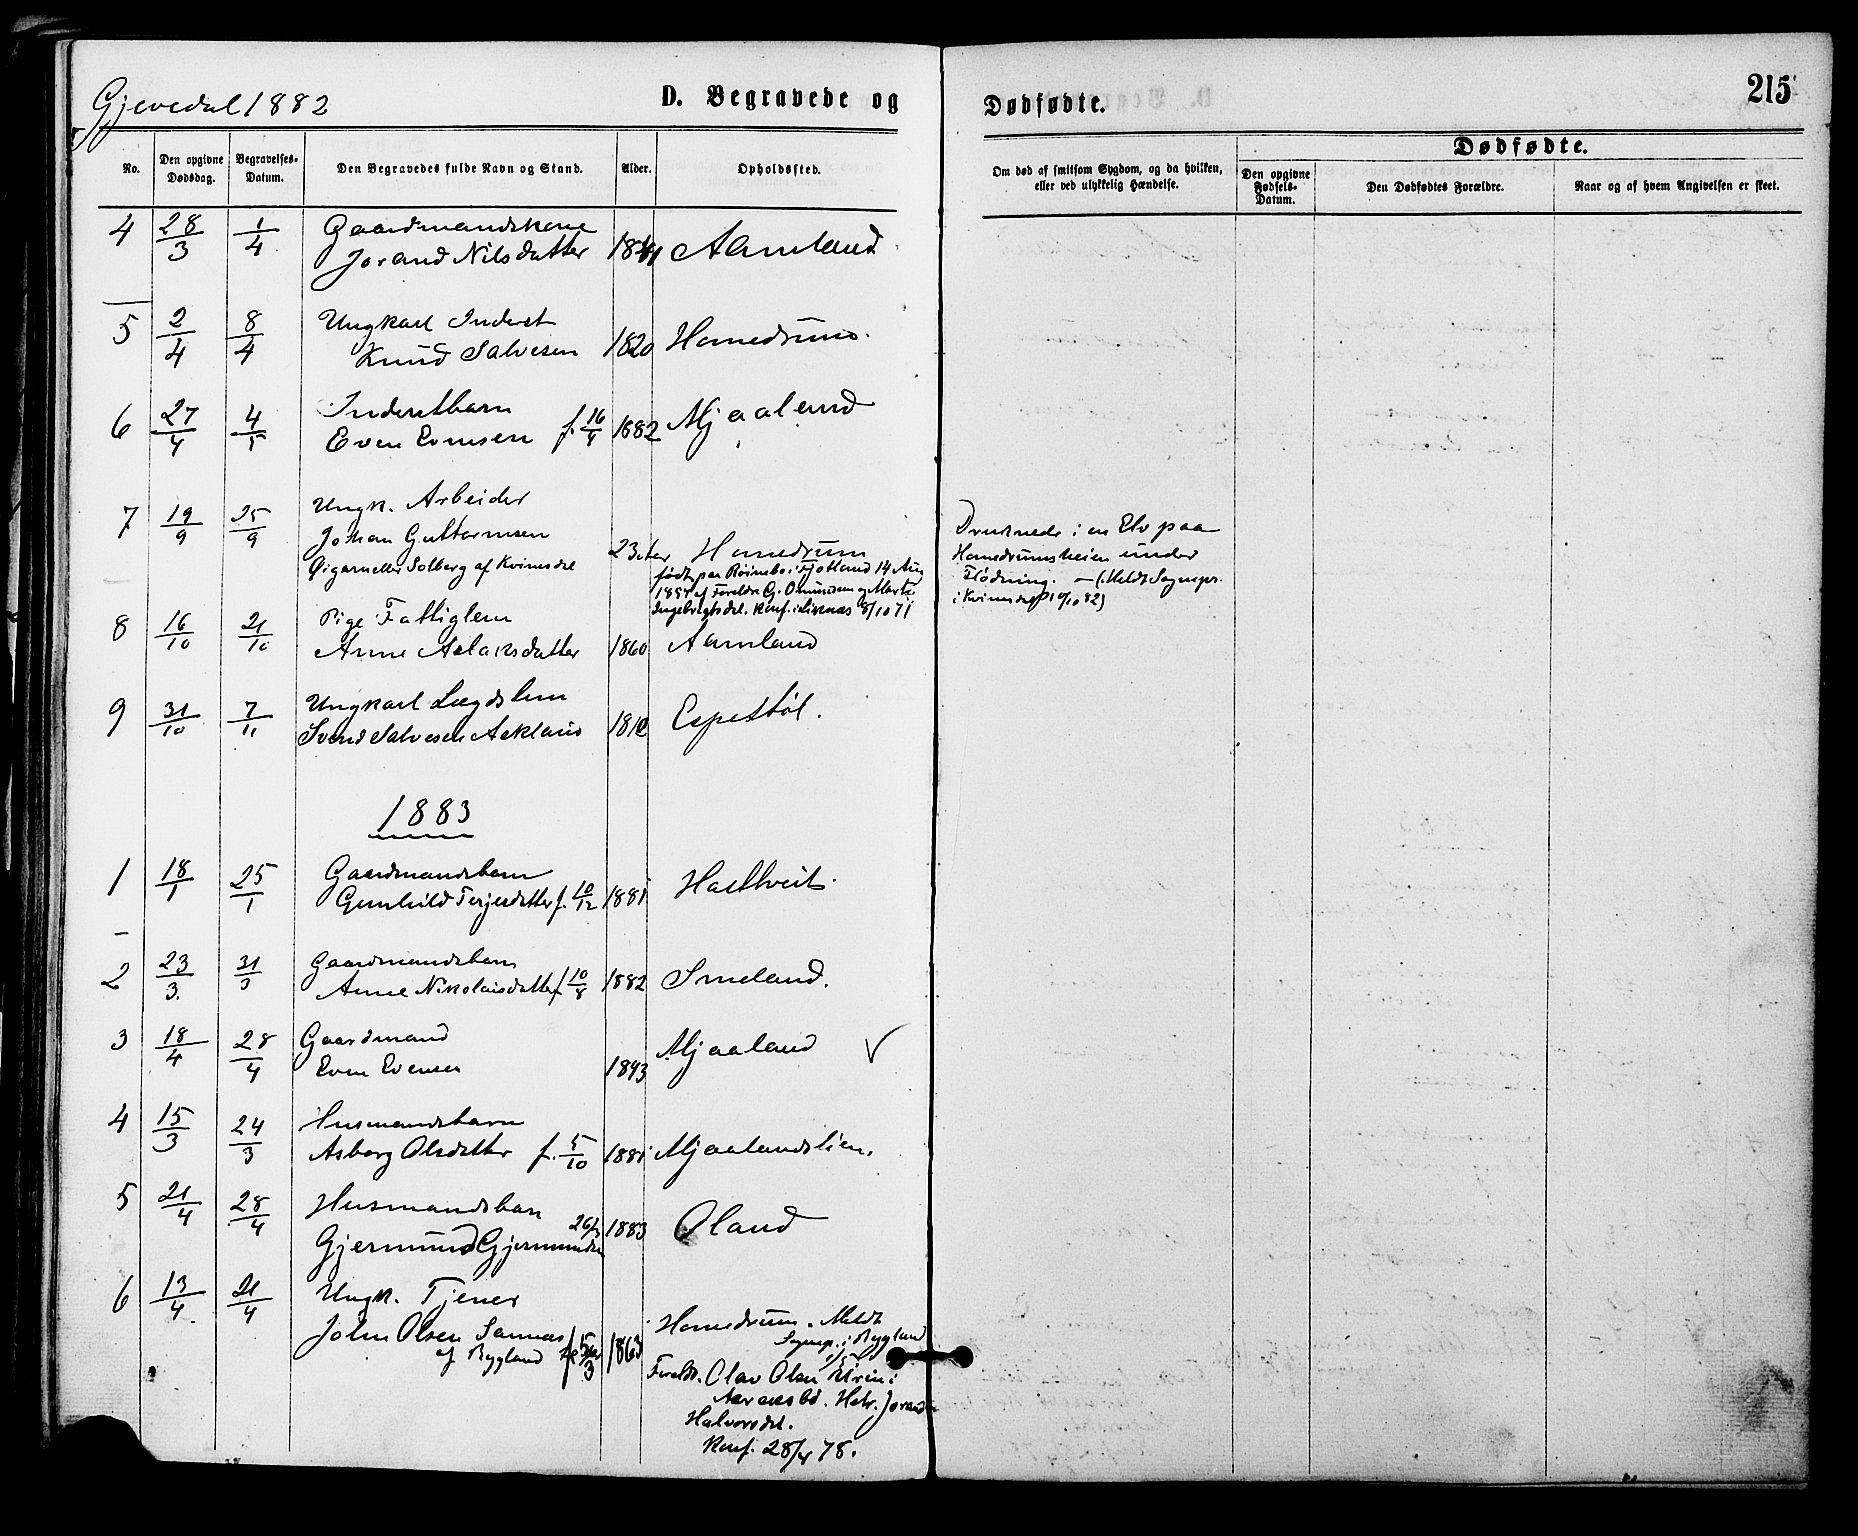 Gjevedal 1882
D. Begravede og
Dødfødte.
215
No.
Den opgivne Dødsdag.
Begravelses-Datum.
Den Begravedes fulde Navn og Stand.
Alder.
Opholdssted.
Om død af smitsom Sygdom, og da hvilken,
eller ved ulykkelig Hændelse.
Dødfødte.
Den opgivne Fødsels-Datum.
Den Dødfødtes Forældre.
Naar og af hvem Angivelsen er skeet.
4 28/3 1/4 Gaardmandskone
Jorand Nilsdatter 1841 Aamland
5 2/4 8/4 Ungkarl Inderst
Knud Salvesen 1820 Homedrum.
6 27/4 4/5 Inderstbarn
Even Evensen f. 16/4 1882 Mjaaland
7 19/9 25/9 Ungk. Arbeider
Johan Guttormsen
Solberg af Kvinesdal 23 Homedrum
født paa Røinebo i Fjotland 14 Aug
af Foreldre G. Omundsen og Marte
Ingebrigtsdt. Konf. i Liknæs 8/10 71
Druknede i en Elv paa
Homedrumsheien under
Flødning. — (Meldt Sognepr.
i Kvinesdal 10/10 82)
8 16/10 21/10 Pige Fattiglem
Anne Aslaksdatter 1860 Aamland
9 31/10 7/11 Ungkarl Lægdslem
Svend Salvesen Askland Espestøl.
1883
1 18/1 25/1 Gaardmandsbarn
Gunhild Terjesdatter f. 10/12 1881 Hasthveit.
2 23/3 31/3 Gaardmandsbarn
Anne Nikolaisdatter f. 10/8 1882 Smeland.
3 18/4 28/4 Gaardmand
Even Evensen 1843 Mjaaland ✓
4 15/3 24/3 Husmandsbarn
Asborg Olsdatter f. 5/10 1881 Mjaalandslien.
5 21/4 28/4 Husmandsbarn
Gjermund Gjermundsen 1883 Oland
6 13/4 21/4 Ungk. Tjener
John Olsen Sannes
af Bygland 1863 Homedrum. Meldt
Sognep. i Bygland
Foreldr. Olav Olsen
Jorand
Halvorsdt.
Konf. 28/4 78.